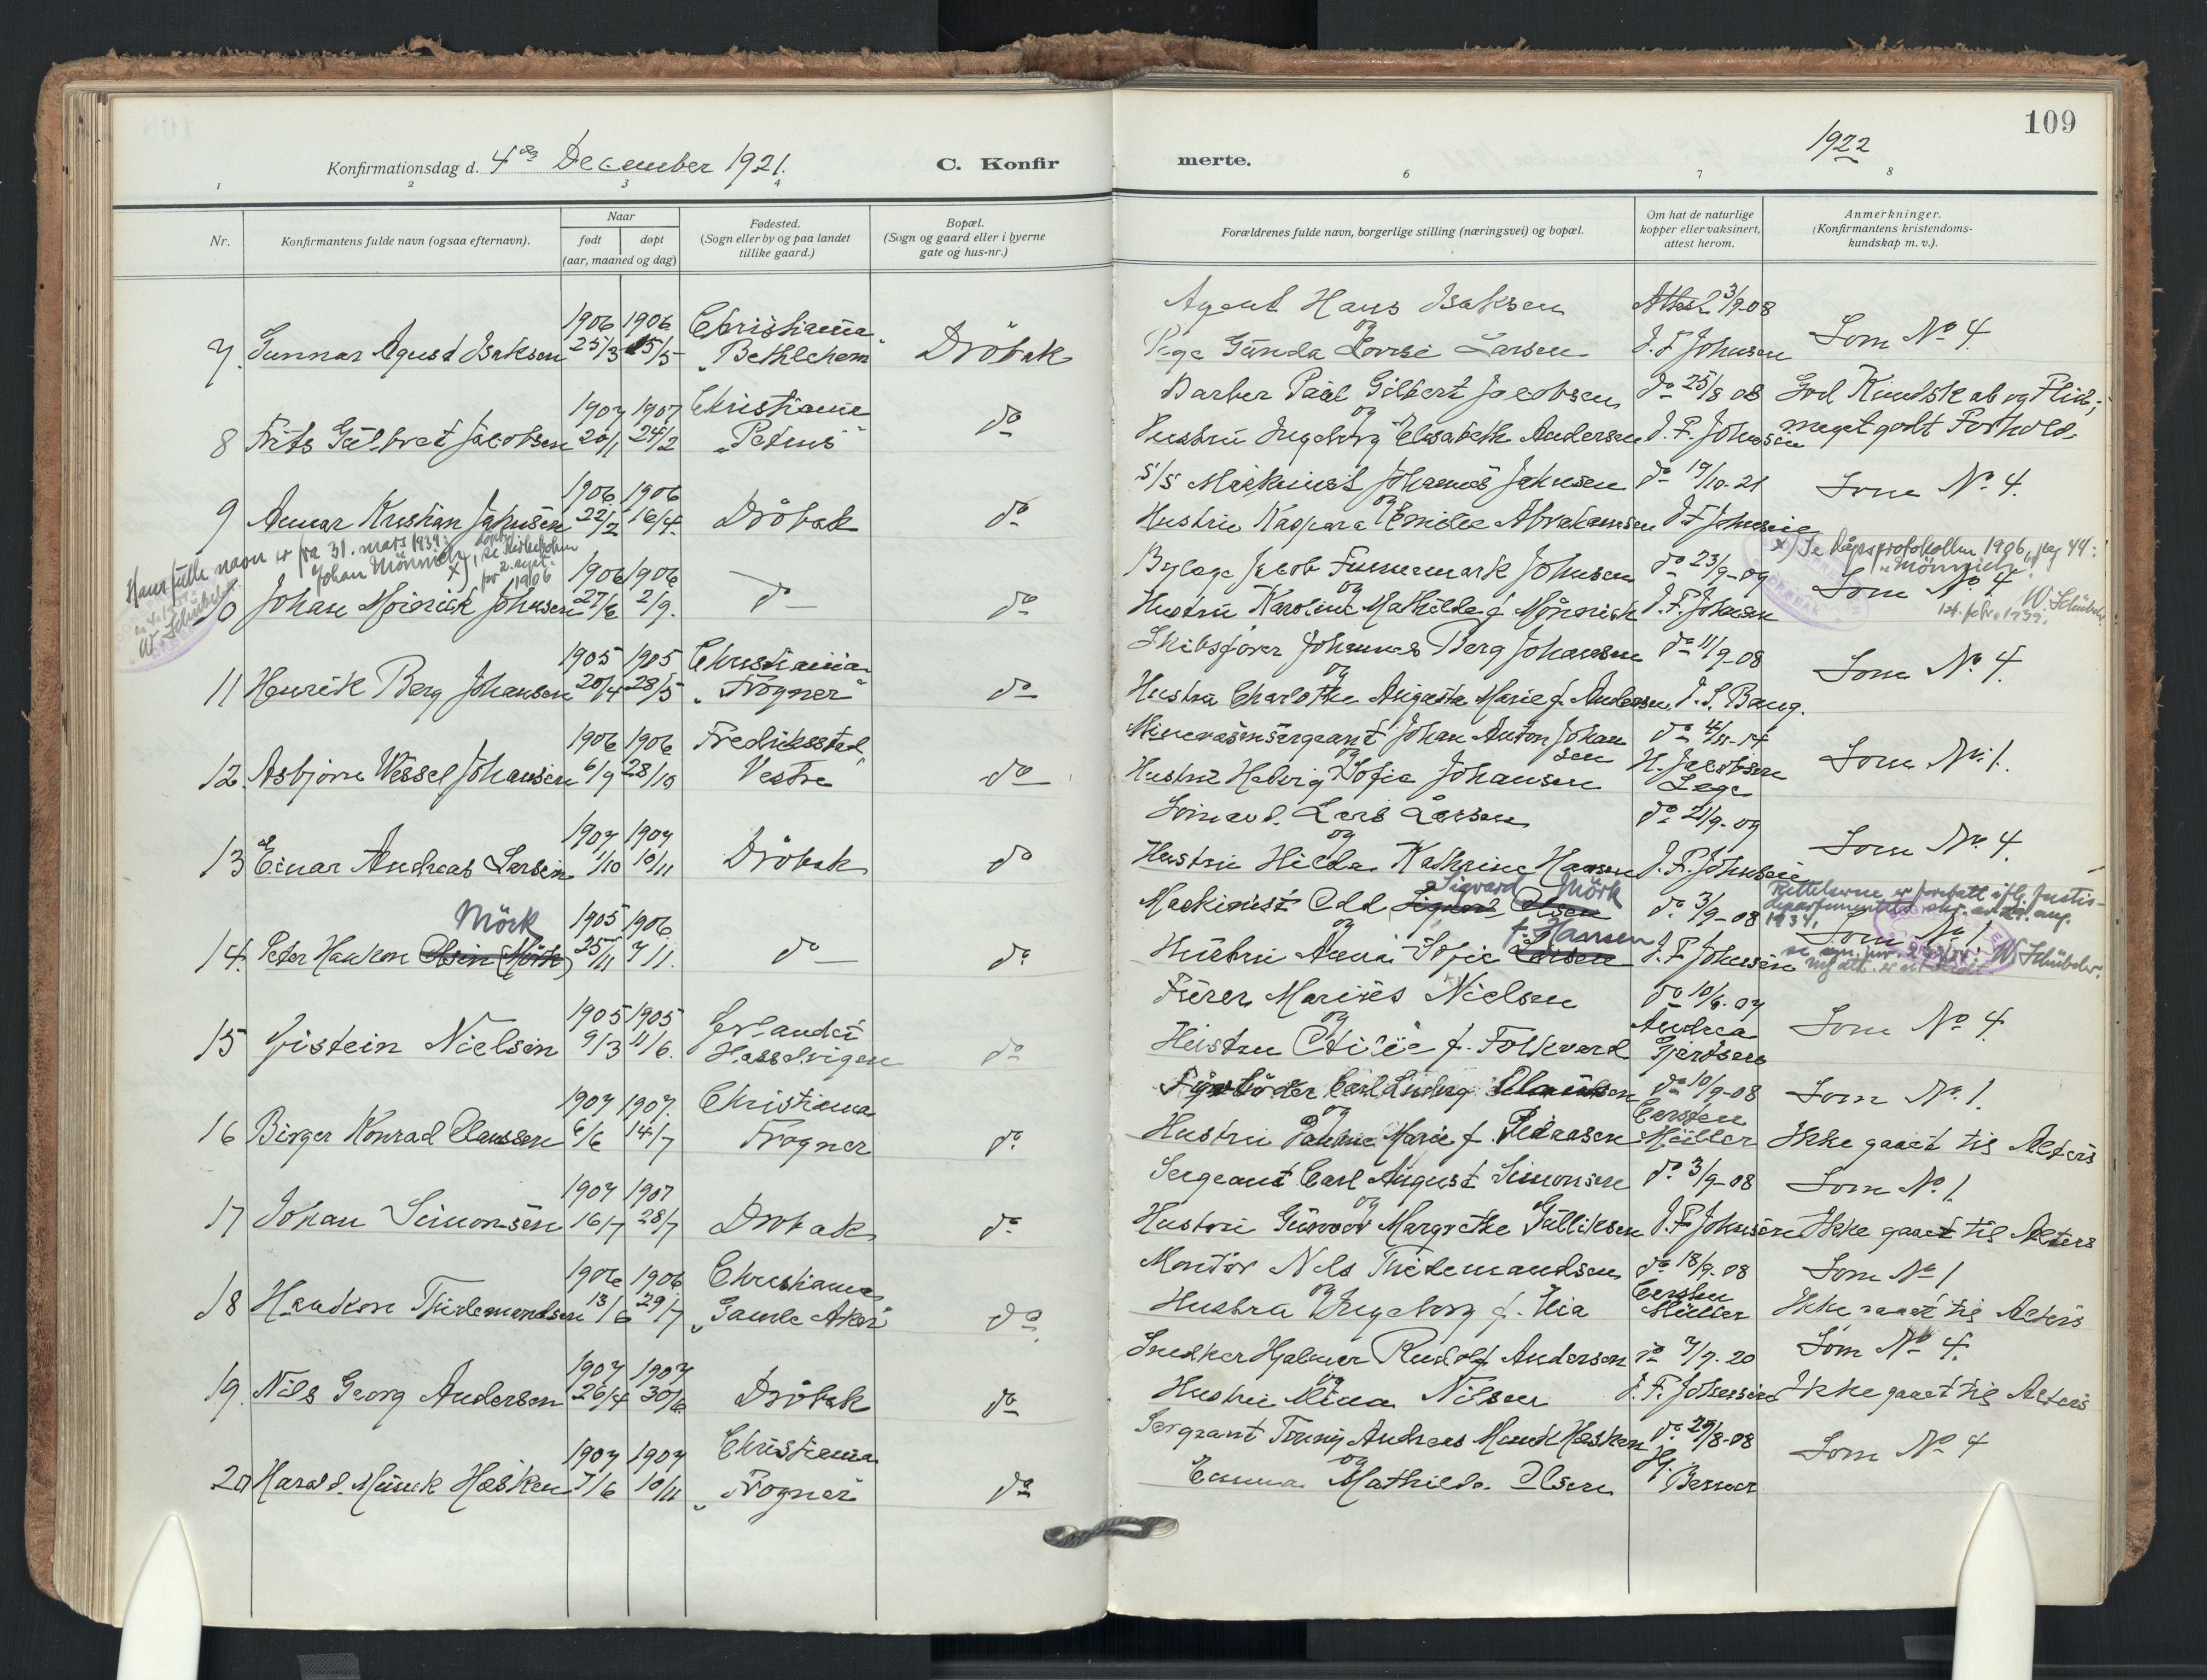 109
Konfirmationsdag d. 4de December 1921.
C. Konfir
merte.
1922
1 2 3 4 6 7 8
Nr.
Konfirmantens fulde navn (ogsaa efternavn).
Naar
født
døpt
(aar, maaned og dag)
Fødested.
(Sogn eller by og paa landet
tillike gaard.)
Bopæl.
(Sogn og gaard eller i byerne
gate og hus-nr.)
Forældrenes fulde navn, borgerlige stilling (næringsvei) og bopæl.
Om hat de naturlige
kopper eller vaksinert,
attest herom.
Anmerkninger.
(Konfirmantens kristendoms-
kundskap m. v.).
1906 1906 Christiania Agent Hans Isaksen Attest 3/9-08
7. Gunnar Agust Isaksen 25/3 25/5 "Bethlehem" Dröbak og Pige Gunda Lovise Larsen J. F Johnsen Som No 4.
1907 1907 Christiania Barber Paul Gilbert Jacobsen do 25/8 08 God Kundskab og Flid;
8 Frits Gilbret Jacobsen 20/1 24/2 "Petrus" do og Hustru Ingeborg Elisabeth Andersen J. F. Johnsen meget godt Forhold.
1906 1906 S/S Maskinist Johannes Johnsen do 19/10.21
9 Annar Kristian Johnsen 22/2 16/4. Dröbak do og Hustru Kaspara Emilie Abrahamsen J F Johnsen Som No 4.
Hans fulle navn er fra 31. mars 1939:
Johan Mönnich x)
1906
W. Schübeler
x) Se dåpsprotokollen 1906, pag 44:
"Mönnich".
1906 1906 Byfoge Jacob Finnemark Johnsen do 23/9-09
10 Johan Moinick Johnsen 27/6 2/9. do do og Hustru Karoline Mathilde f. Mönnich J. F. Johnsen Som No 4
14. febr. 1939. W. Schübeler.
1905 1905 Christiania Skibsförer Johannes Berg Johansen do 11/9-08
11 Henrik Berg Johansen 20/4 28/5 "Frogner" do og Hustru Charlotte Augusta Marie f. Andersen J. S. Bang. Som No 4.
1906 1906 Fredriksstad Minevæsensergeant Johan Anton Johansen do 4/11-14
12. Asbjörn Wessel Johansen 6/9 28/10 Vestre do og Hustru Hedvig Sofie Johansen H. Jacobsen Læge Som No 1.
1907 1907 Sömand. Lars Larsen do 21/9-09
13 Einar Andreas Larsen 1/10 10/11 Dröbak do og Hustru Hilda Kathrine Hansen J. F. Johnsen Som No 4.
Mörk 1905 1906 Maskinist Odd Sigvard Mörk Sigvard Olsen do 3/9-08
Rettelserne er foretatt ifl. Justis-
departementets skr. av 29. aug.
1934.
14. Peter Haakon Olsen (Mörk) 25/11 7/1. do do og Hustru Anna Sofie Larsen f. Hansen J. F Johnsen Som No 1.
W Schübeler.
1905 1905 Furer Marius Nielsen do 10/6.07
15 Öistein Nielsen 9/3 11/6. Hasselvigen do og Hustru Otilie f. Folkvard Andrea Gjertsen Som No 4.
1907 1907. Christiania Fyrböder Carl Ludvig Clausen do 10/9-08 Som No 1.
16 Birger Konrad Claussen 6/6 14/7 Frogner do og Hustru Pauline Marie f. Pedersen Carsten Müller Ikke gaaet til Alters
1907 1907 Sergeant Carl August Simonsen do 3/9-08 Som No 1.
17 Johan Simonsen 16/7 28/7 Dröbak do og Hustru Gunvor Margrethe Gulliksen J. F. Johnsen Ikke gaaet til Alters
1906 1906 Christiania Montör Nils Thidemandsen do 18/9-08 Som No 1
18 Haakon Thidemandsen 13/6 29/7 "Gamle Aker" do og Hustru Ingeborg f. Lia Carsten Müller Ikke gaaet til Alters
1907 1907 Snedker Hjalmer Rudolf Andersen do 7/7. 20 Som No 4.
19. Nils Georg Andersen 26/4 30/6 Dröbak do og Hustru Mina Nilsen J. F. Johnsen Ikke gaaet til Alters
1907 1907 Christiania Sergeant Tonny Andreas Munck Hasken do 29/8-08
20 Harald Munck Hasken 7/6 10/11 "Frogner" do og Emma Mathilde Olsen Som No 4